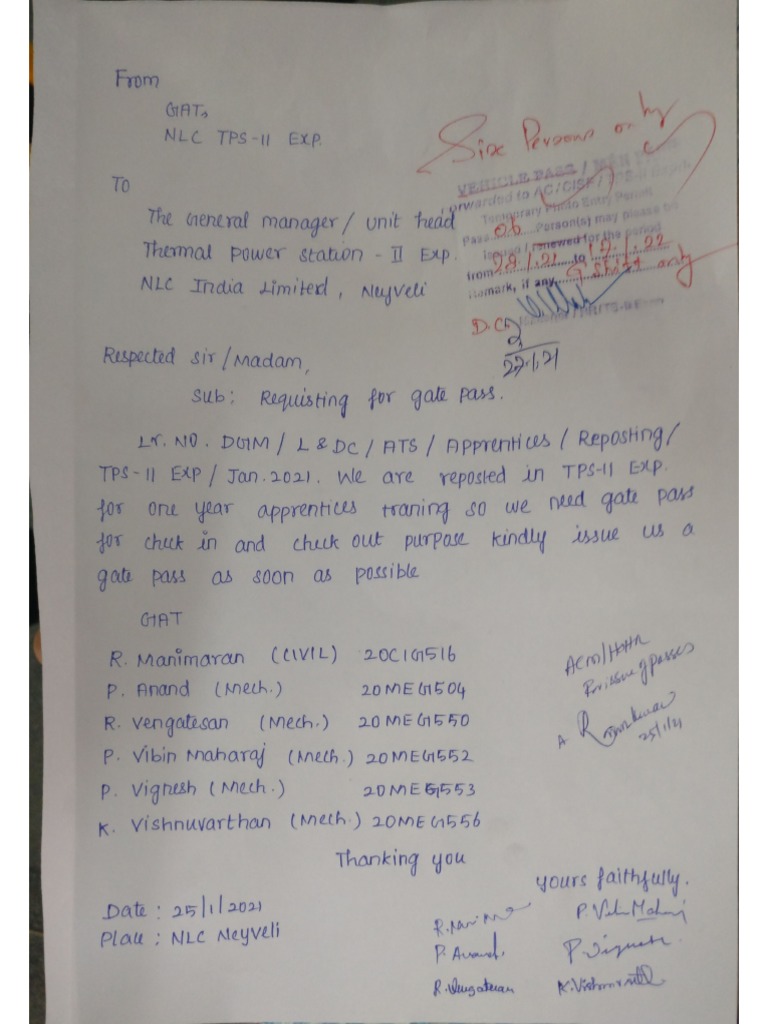 From
GATs
NLC TPS-II EXP.
Six Persons only
To
VEHICLE PASS / MEN
The General manager / unit head
forwarded to AC/CISF /
Temporary Photo Entry Permit
Thermal Power Station - II Exp.
Pass 06 Person(s) may please be
issued / renewed for the period
NLC India Limited, Neyveli
from 28.1.21 to .1.22
Remark, if any, G Shift only
22.1.21
Respected Sir/Madam,
Sub: Requisting for gate pass.
Lr. NO. DGM / L & DC / ATS / Apprentices / Reposting/
TPS-II EXP / Jan.2021. We are reposted in TPS-II EXP.
for one year apprentices traning so we need gate pass
for check in and check out purpose kindly issue us a
gate pass as soon as possible
GAT
R. Manimaran (CIVIL) 20CIG516
P. Anand (Mech.) 20MEG504
R. Vengatesan (Mech.) 20MEG550
P. Vibin Maharaj (Mech.) 20MEG552
P. Vignesh (Mech.) 20MEG553
K. Vishnuvarthan (Mech.) 20MEG556
issue of passes
25/1/21
Thanking you
Yours faithfully.
Date : 25/1/2021
Place : NLC Neyveli
P. Anand
R. Vengatesan